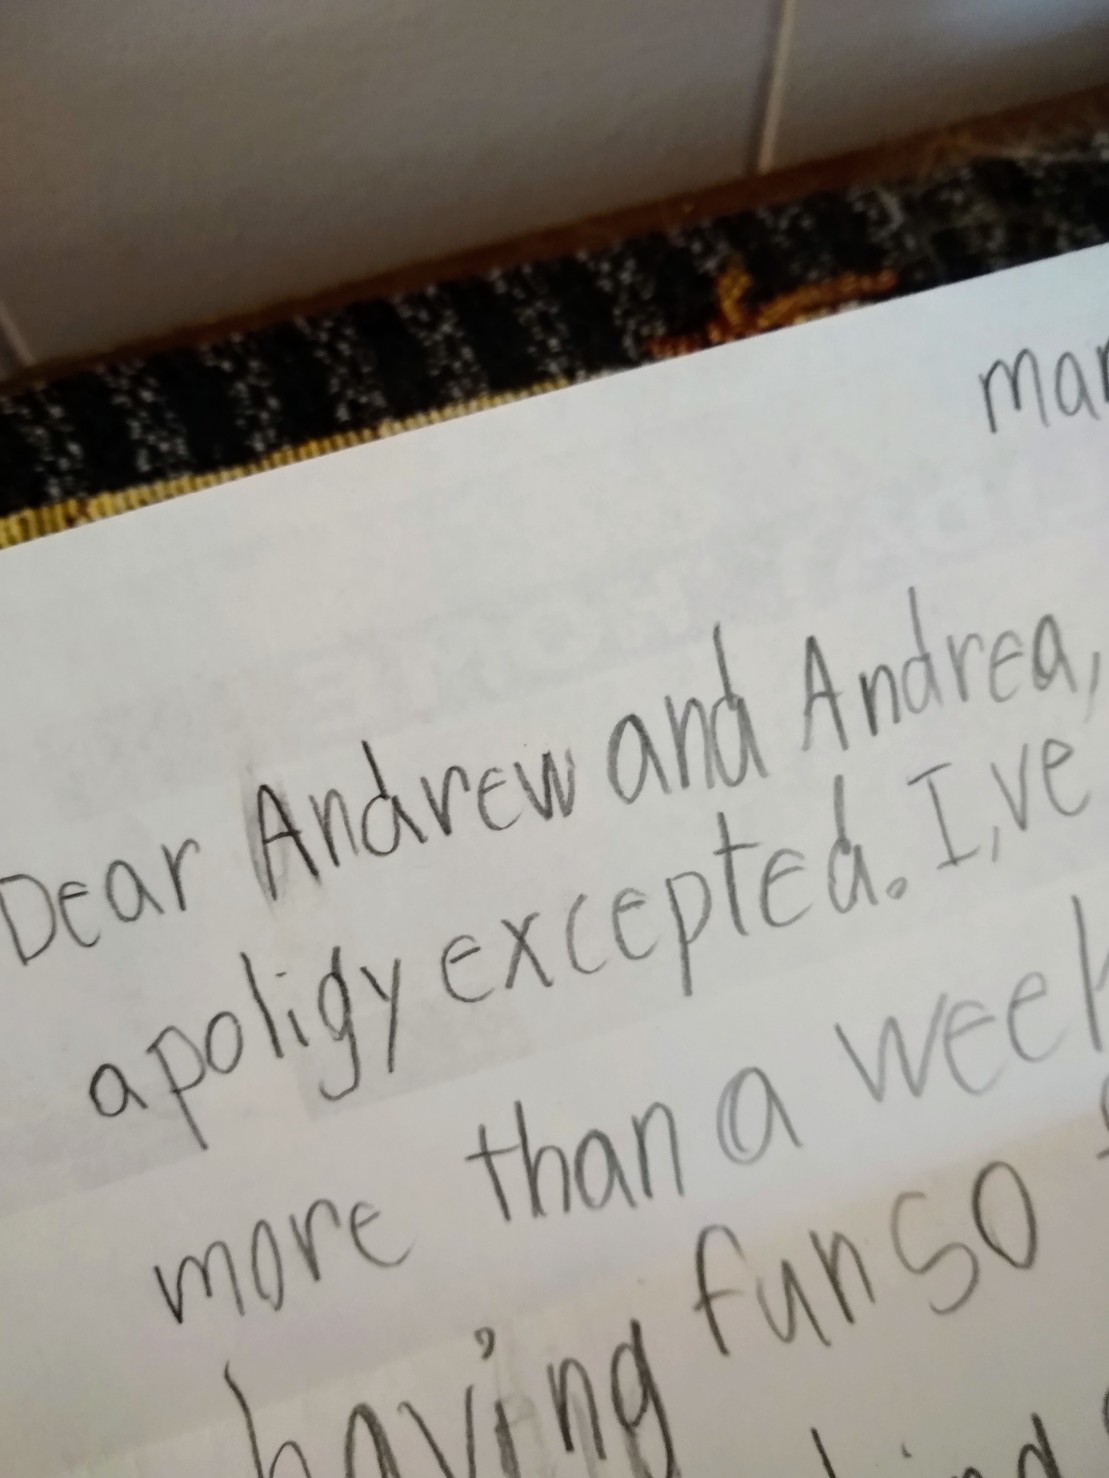 mar
Dear Andrew and Andrea,
apoligy excepted. I,ve
more than a week
having fun so